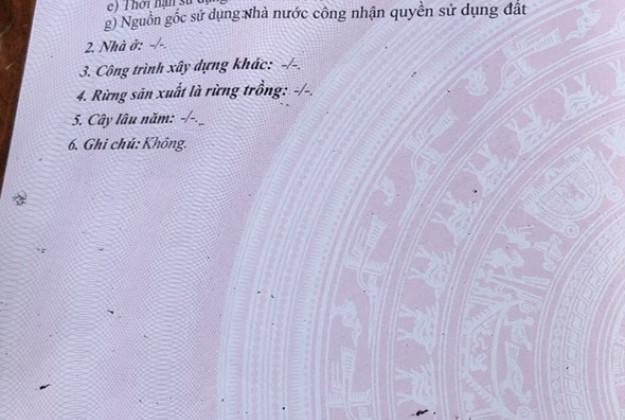 e) Thời hạn sử dụng
g) Nguồn gốc sử dụng: Nhà nước công nhận quyền sử dụng đất
2. Nhà ở: -/-.
3. Công trình xây dựng khác: -/-.
4. Rừng sản xuất là rừng trồng: -/-.
5. Cây lâu năm: -/-.
6. Ghi chú: Không.